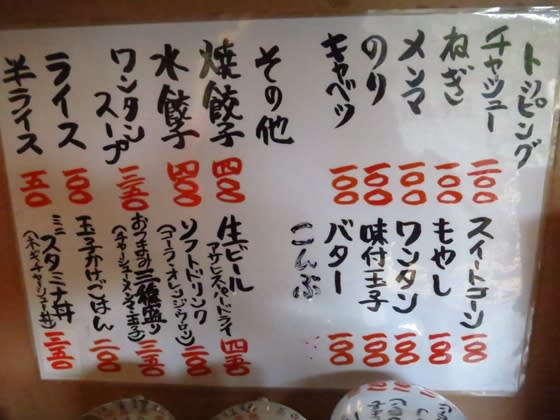 トッピング
チャーシュー 二〇〇
ねぎ 一〇〇
メンマ 一〇〇
のり 一〇〇
キャベツ 一〇〇
スイートコーン 一〇〇
もやし 一〇〇
ワンタン 一〇〇
味付玉子 一〇〇
バター 一〇〇
こんぶ
その他
焼餃子 四〇〇
水餃子 四〇〇
ワンタンスープ 三五〇
ライス 一〇〇
半ライス 五〇
生ビール 四五〇
アサヒスーパードライ
ソフトドリンク 二〇〇
(コーラ・オレンジ・ウーロン)
おつまみ三種盛り 三五〇
(チャーシュー・メンマ・玉子)
玉子かけごはん 二〇〇
ミニスタミナ丼 三五〇
(ネギ・チャーシュー丼)